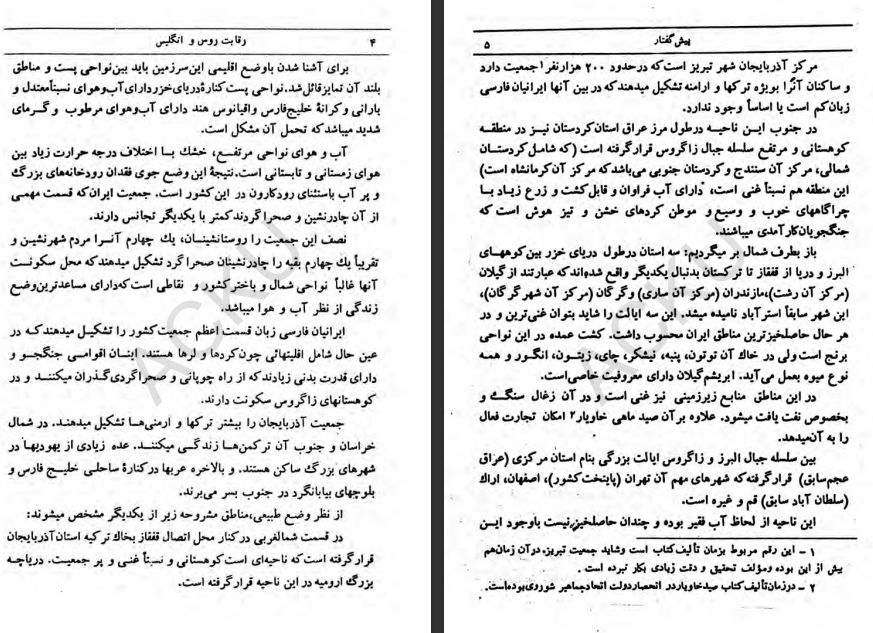 ۴
رقابت روس و انگلیس
برای آشنا شدن باوضع اقلیمی این‌سرزمین باید بین‌نواحی پست و مناطق
بلند آن تمایزقائل‌شد.نواحی پست‌کنارهٔ‌دریای‌خزردارای‌آب‌وهوای نسبتاً‌معتدل و
بارانی وکرانهٔ خلیج‌فارس واقیانوس هند دارای آب‌وهوای مرطوب و گرمای
شدید میباشدکه تحمل آن مشکل است.
آب و هوای نواحی مرتفع، خشك بـا اختلاف درجه حرارت زیاد بین
هوای زمستانی و تابستانی است.نتیجهٔ این وضع جوی فقدان رودخانه‌های بزرگ
و پر آب باستثنای رودکارون در این‌کشور است. جمعیت ایران‌که قسمت مهمی
از آن چادرنشین و صحراگردندکمتر با یکدیگر تجانس دارند.
نصف این جمعیت را روستانشینـان، یك چهارم آنـرا مردم شهرنشین و
تقریباً یك چهارم بقیه را چادرنشینان صحراگرد تشکیل میدهندکه محل سکونت
آنها غالباً نواحی شمال و باخترکشور و نقاطی است‌که‌دارای مساعدترین‌وضع
زندگی از نظر آب و هوا میباشد.
ایرانیان فارسی زبان قسمت اعظم جمعیت‌کشور را تشکیـل میدهنـد کـه در
عین حال شامل اقلیتهائی چون‌کردها و لرها هستند. اینـان اقوامـی جنگجـو و
دارای قدرت بدنی زیادندکه از راه چوپانی و صحراگردی‌گـذران میکننـد و در
کوهستانهای زاگروس سکونت دارند.
جمعیت آذربایجان را بیشتر ترکها و ارمنی‌هـا تشکیل میدهنـد. در شمال
خراسان و جنوب آن ترکمن‌هـا زندگـی میکننـد. عده زیادی از یهودیهـا در
شهرهای بزرگ ساکن هستند. و بالاخره عربها درکنارهٔ ساحلـی خلیـج فارس و
بلوچهای بیابانگرد در جنوب بسر می‌برند.
از نظر وضع طبیعی،مناطق مشروحه زیر از یکدیگر مشخص میشوند:
در قسمت شمالغربی درکنار محل اتصال قفقاز بخاك ترکیه استان‌آذربایجان
قرارگرفته است‌که ناحیه‌ای است‌کوهستانی و نسبتاً غنی و پر جمعیـت. دریاچـه
بزرگ ارومیه در این ناحیه قرارگرفته است.
پیش‌گفتار
۵
مرکز آذربایجان شهر تبریز است‌که درحدود ۲۰۰ هزارنفر۱جمعیت دارد
و ساکنان آنرا بویژه ترکها و ارامنه تشکیل میدهندکه در بین آنها ایرانیان فارسی
زبان‌کم است یا اساساً وجود ندارد.
در جنوب ایـن ناحیـه درطول مرز عراق استان‌کردستان نیـز در منطقـه
کوهستانی و مرتفع سلسله جبال زاگروس قرارگرفته است (که شامل‌کردستـان
شمالی، مرکز آن سنندج وکردستان جنوبی می‌باشدکه مرکز آن‌کرمانشاه است)
این منطقه هم نسبتاً غنی است، دارای آب فراوان و قابل‌کشت و زرع زیـاد بـا
چراگاههای خوب و وسیع و موطن کردهای خشن و تیز هوش است که
جنگجویان‌کارآمدی میباشند.
باز بطرف شمال بر میگردیم: سه استان درطول دریای خزر بین‌کوههـای
البرز و دریا از قفقاز تا ترکستان بدنبال یکدیگر واقع شده‌اندکه عبارتند ازگیلان
(مرکز آن رشت)،مازندران (مرکز آن ساری) وگرگان (مرکز آن شهرگرگان)،
این شهر سابقاً استرآباد نامیده میشد. این سه ایالت را شاید بتوان غنی‌ترین و در
هر حال حاصلخیزترین مناطق ایران محسوب داشت. کشت عمده در این نواحی
برنج است‌ولی در خاك آن توتون، پنبه، نیشکر، چای، زیتـون، انگـور و همـه
نوع میوه بعمل می‌آید. ابریشم‌گیلان دارای معروفیت خاصی‌است.
در این مناطق منابع زیرزمینی نیز غنی است و در آن زغال سنگ و
بخصوص نفت یافت میشود. علاوه بر آن صید ماهی خاویار۲ امکان تجارت فعال
را به آن‌میدهد.
بین سلسله جبال البرز و زاگروس ایالت بزرگی بنام استان مرکزی (عراق
عجم‌سابق) قرارگرفته‌که شهرهای مهم آن تهران (پایتخت‌کشور)، اصفهان، اراك
(سلطان آباد سابق) قم و غیره است.
این ناحیه از لحاظ آب فقیر بوده و چندان حاصلخیزنیست باوجود ایـن
۱ – این رقم مربوط بزمان تألیف‌کتاب است وشاید جمعیت تبریز،درآن زمان‌هم
بیش از این بوده ومؤلف تحقیق و دقت زیادی بکار نبرده است .
۲ – درزمان‌تألیف‌کتاب صیدخاویاردر انحصاردولت اتحادجماهیر شوروی‌بوده‌است.
ACKU
ACKU